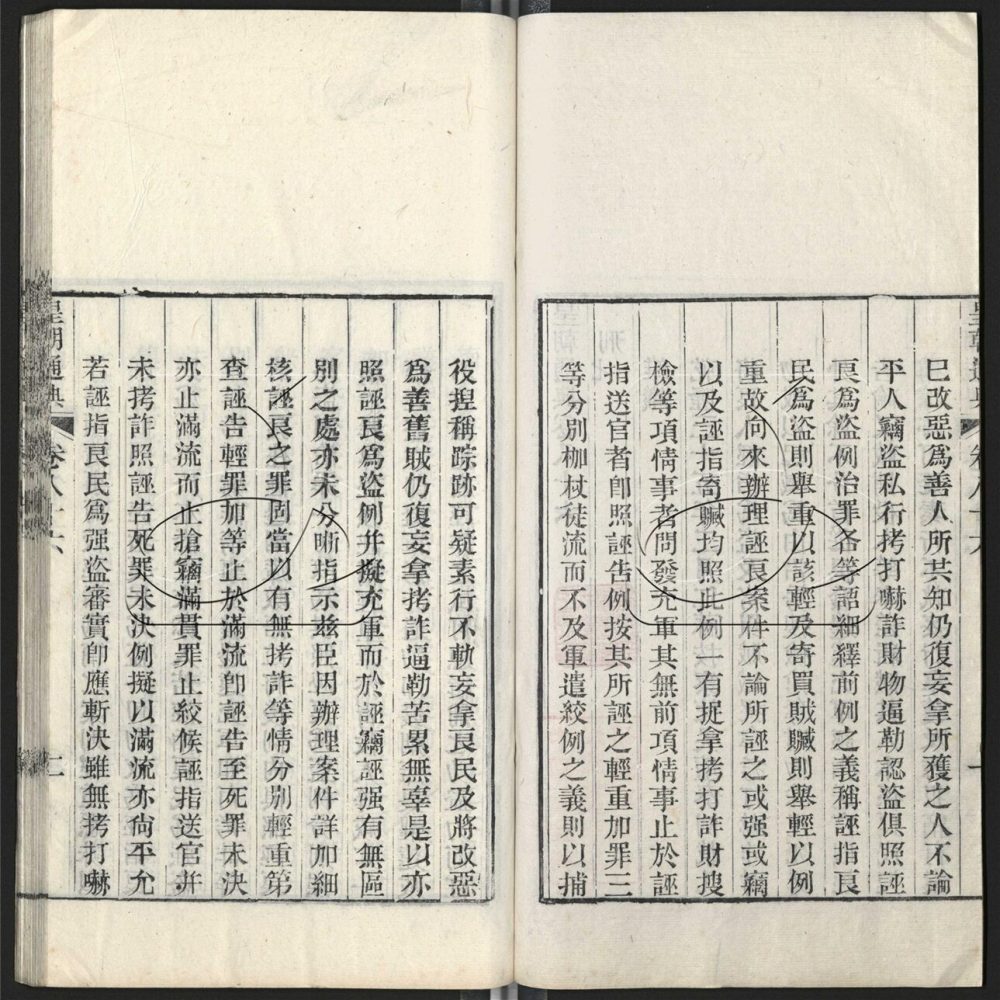 巳改惡爲善人所共知仍復妄拿所獲之人不論
平人竊盜私行拷打嚇詐財物逼勒認盜俱照誣
良爲盜例治罪各等語細繹前例之義稱誣指良
民爲盜則舉重以該輕及寄買賊贓則舉輕以例
重故向來辦理誣良案件不論所誣之或强或竊
以及誣指寄贓均照此例一有捉拿拷打詐財搜
檢等項情事者問發充軍其無前項情事止於誣
指送官者卽照誣告例按其所誣之輕重加罪三
等分別枷杖徒流而不及軍遣絞例之義則以捕
役揑稱踪跡可疑素行不軌妄拿良民及將改惡
爲善舊賊仍復妄拿拷詐逼勒苦累無辜是以亦
照誣良爲盜例并擬充軍而於誣竊誣强有無區
別之處亦未分晰指示茲臣因辦理案件詳加細
核誣良之罪固當以有無拷詐等情分別輕重第
查誣告輕罪加等止於滿流卽誣告至死罪未決
亦止滿流而止搶竊滿貫罪止絞候誣指送官并
未拷詐照誣告死罪未決例擬以滿流亦尙平允
若誣指良民爲强盜審實卽應斬決雖無拷打嚇
皇朝通典
卷八十六
二